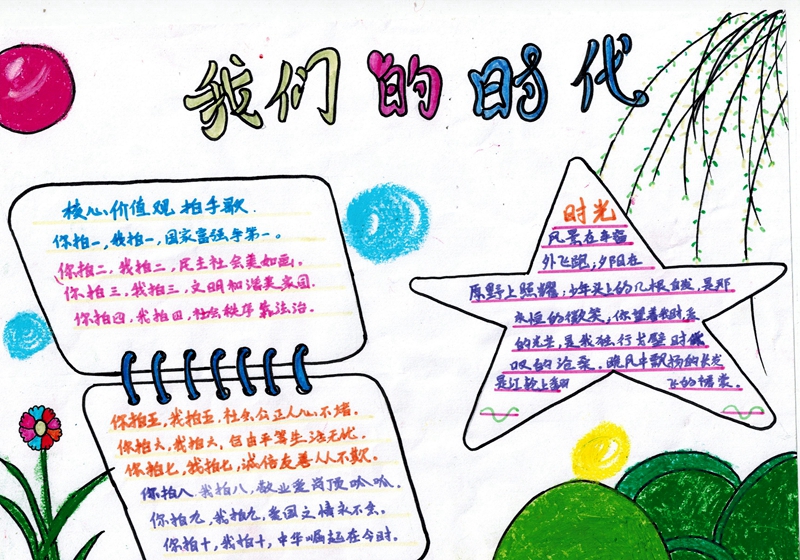 我们的时代
核心价值观拍手歌
你拍一,我拍一,国家富强争第一。
你拍二,我拍二,民主社会美如画。
你拍三,我拍三,文明和谐美家园。
你拍四,我拍四,社会秩序靠法治。
你拍五,我拍五,社会公正人心不堵。
你拍六,我拍六,自由平等生活无忧。
你拍七,我拍七,诚信友善人人不欺。
你拍八,我拍八,敬业爱岗顶呱呱。
你拍九,我拍九,爱国之情永不丢。
你拍十,我拍十,中华崛起在今时。
时光
风景在车窗
外飞跑;夕阳在
原野上照耀;少年头上的几根白发,是那
永恒的微笑,你望着我时
的光芒,是我独行戈壁时
叹的沧桑。晚风中飘扬的长发
是江